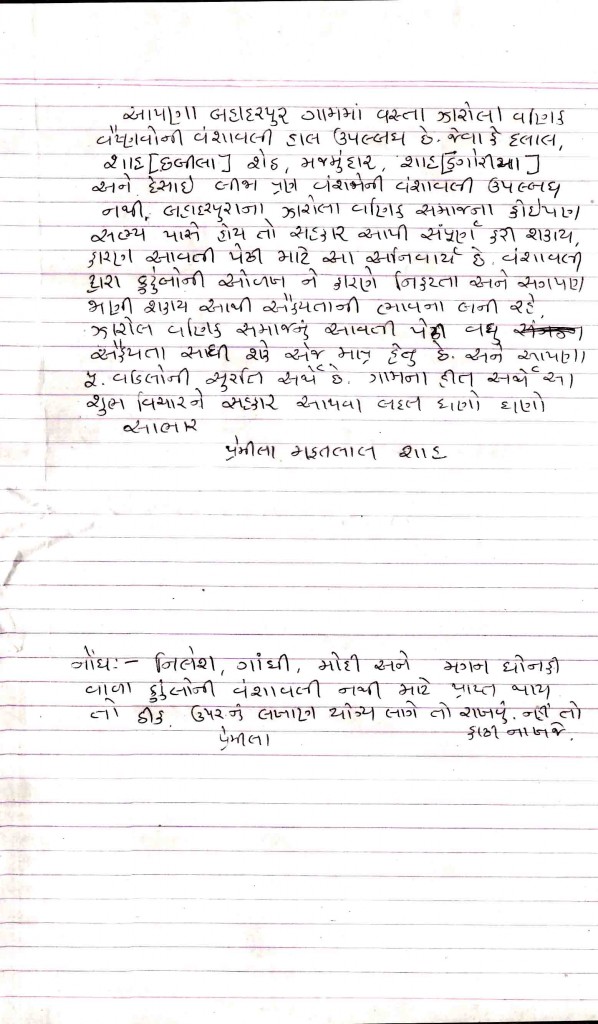 આપણા બહાદરપુર ગામમાં વસતા ઝારોલા વણિક
વૈષ્ણવોની વંશાવલી હાલ ઉપલબ્ધ છે. જેવા કે દલાલ,
શાહ [હલીલા] શેઠ, મજમુંદાર, શાહ [ડુંગોરીઆ]
અને દેસાઇ બીજા ત્રણ વંશજોની વંશાવલી ઉપલબ્ધ
નથી. બહાદરપુરાના ઝારોલા વણિક સમાજના કોઇપણ
સભ્ય પાસે હોય તો સહકાર આપી સંપૂર્ણ કરી શકાય,
કારણ આવતી પેઢી માટે આ અનિવાર્ય છે. વંશાવલી
દ્વારા કુટુંબોની ઓળખ ને કારણે નિકટતા અને સગપણ
જાણી શકાય આથી ઐક્યતાની ભાવના બની રહે,
ઝારોલ વણિક સમાજનું આવતી પેઢી વધુ
ઐક્યતા સાધી શકે એજ માત્ર હેતુ છે. અને આપણા
પૂ. વડિલોની સ્મૃતિ અર્થે છે. ગામના હીત અર્થે આ
શુભ વિચારને સહકાર આપવા બદલ ઘણો ઘણો
આભાર
પ્રેમીલા મફતલાલ શાહ
નોંધઃ- નિલેશ, ગાંધી, મોદી અને મગન ધોનકી
વાળા કુટુંબોની વંશાવલી નથી માટે પ્રાપ્ત થાય
તો ઠીક. ઉપરનું લખાણ યોગ્ય લાગે તો રાખવું. નહીં તો
પ્રેમીલા કાઢી નાખજે.